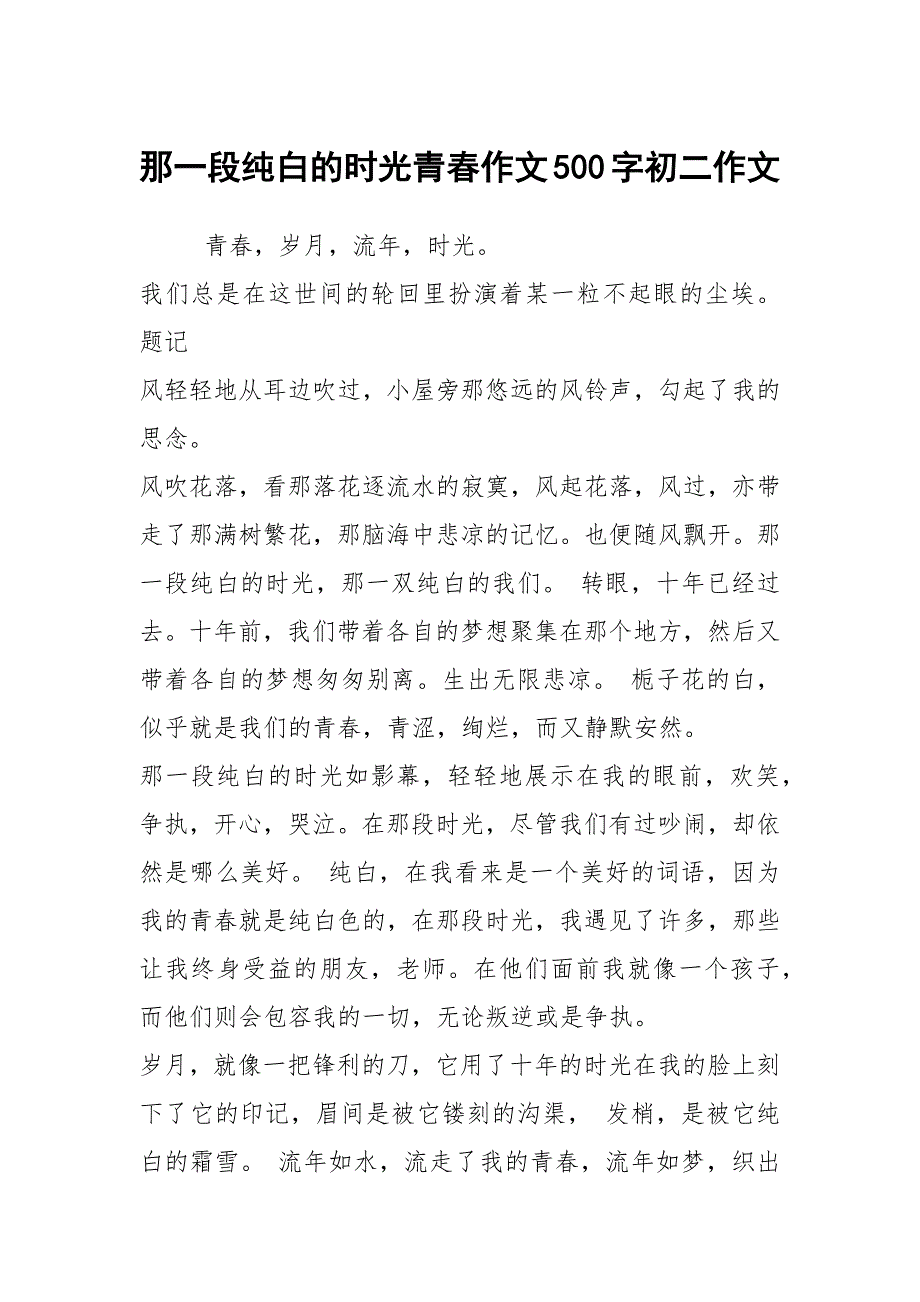 那一段纯白的时光青春作文500字初二作文
青春，岁月，流年，时光。
我们总是在这世间的轮回里扮演着某一粒不起眼的尘埃。
题记
风轻轻地从耳边吹过，小屋旁那悠远的风铃声，勾起了我的
思念。
风吹花落，看那落花逐流水的寂寞，风起花落，风过，亦带
走了那满树繁花，那脑海中悲凉的记忆。也便随风飘开。那
一段纯白的时光，那一双纯白的我们。 转眼，十年已经过
去。十年前，我们带着各自的梦想聚集在那个地方，然后又
带着各自的梦想匆匆别离。生出无限悲凉。 栀子花的白，
似乎就是我们的青春，青涩，绚烂，而又静默安然。
那一段纯白的时光如影幕，轻轻地展示在我的眼前，欢笑，
争执，开心，哭泣。在那段时光，尽管我们有过吵闹，却依
然是哪么美好。 纯白，在我看来是一个美好的词语，因为
我的青春就是纯白色的，在那段时光，我遇见了许多，那些
让我终身受益的朋友，老师。在他们面前我就像一个孩子，
而他们则会包容我的一切，无论叛逆或是争执。
岁月，就像一把锋利的刀，它用了十年的时光在我的脸上刻
下了它的印记，眉间是被它镂刻的沟渠， 发梢，是被它纯
白的霜雪。 流年如水，流走了我的青春，流年如梦，织出